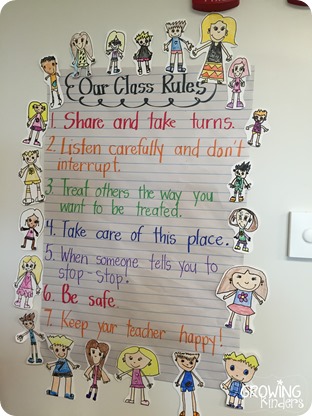 Our Class Rules
1. Share and take turns.
2. Listen carefully and don't
interrupt.
3. Treat others the way you
want to be treated.
4. Take care of this place.
5. When someone tells you to
stop-stop!
6. Be safe.
7. Keep your teacher happy!
GROWING
Kinders